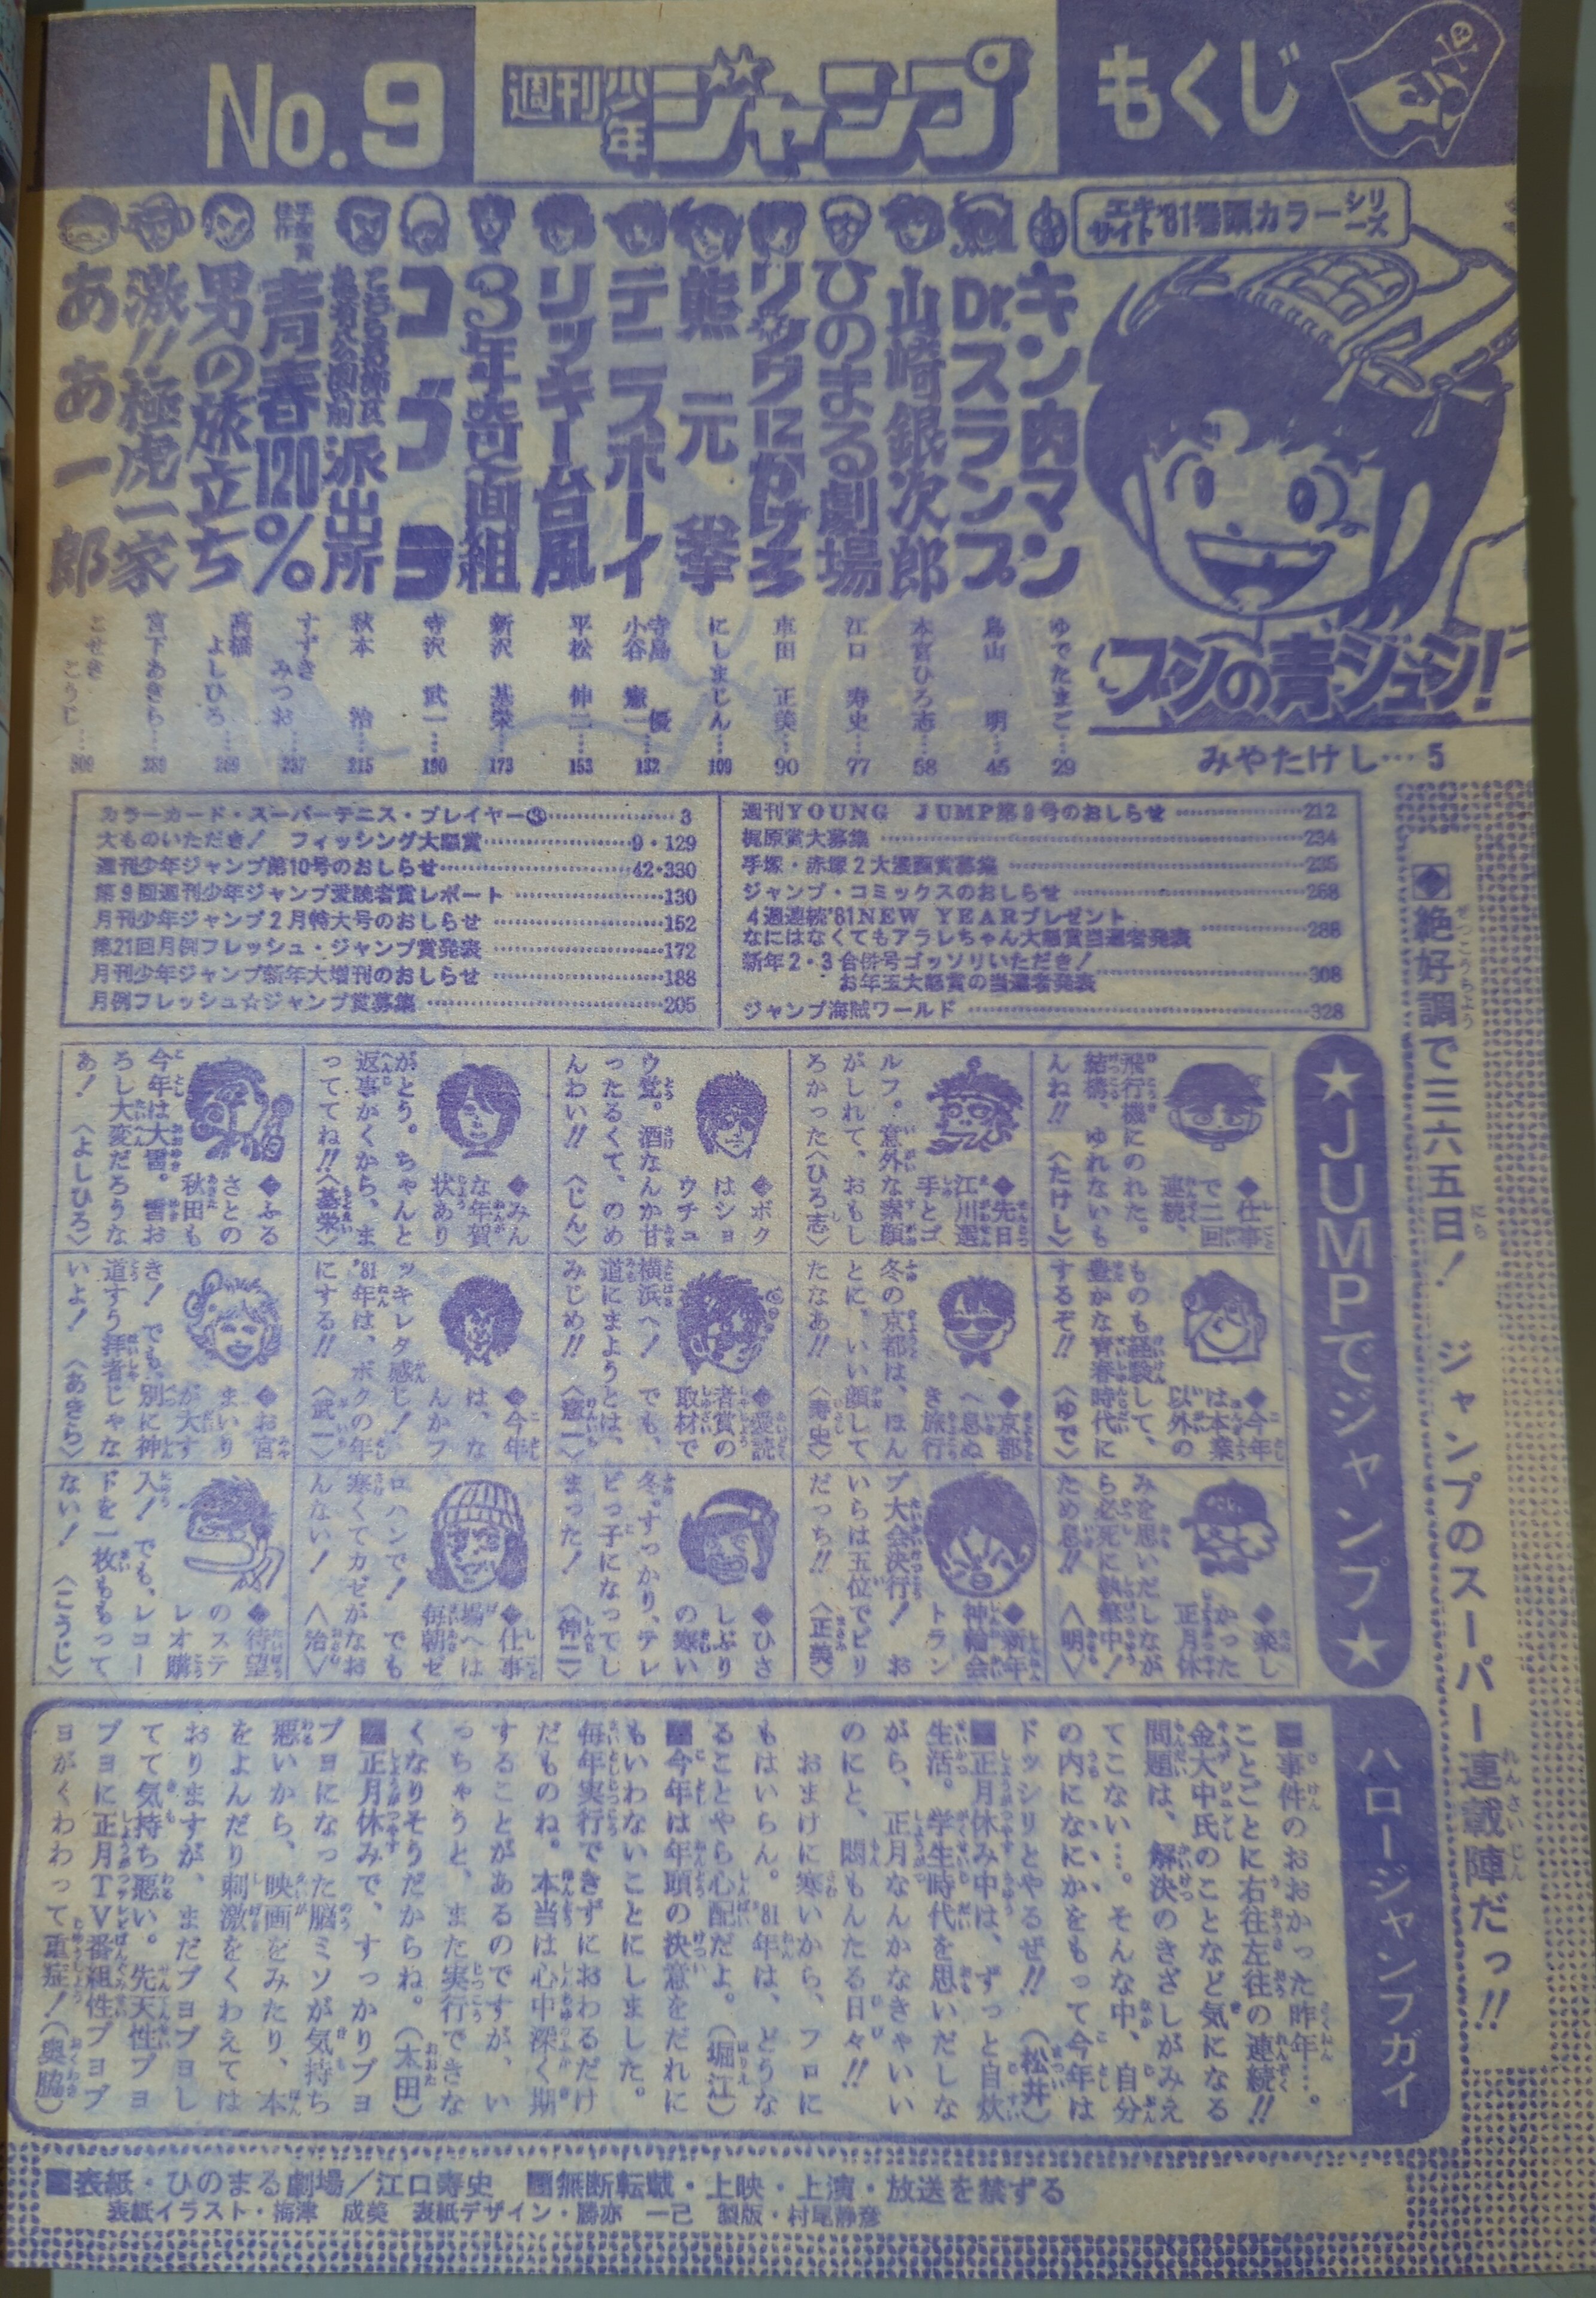 もくじ
週刊少年ジャンプ
No.9
エキサイト'81巻頭カラーシリーズ
フンの青ジュン!
みやたけし…5
キン肉マン ゆでたまご…29
Dr.スランプ 鳥山 明…45
山崎銀次郎 本宮ひろ志…58
ひのまる劇場 江口 寿史…77
リングにかけろ 車田 正美…90
熊元拳 にしまじん…109
テニスボーイ 寺島 優 小谷 憲一…132
リッキー台風 平松 伸二…153
3年奇面組 新沢 基栄…173
コブラ 寺沢 武一…190
こちら葛飾区亀有公園前派出所 秋本 治…215
手塚賞佳作 青春120% すずき みつお…237
男の旅立ち 高橋 よしひろ…269
激!!極虎一家 宮下あきら…
ああ一郎 こせき こうじ…309
カラーカード・スーパーテニス・プレイヤー③…3
大ものいただき! フィッシング大懸賞…9・129
週刊少年ジャンプ第10号のおしらせ…42・330
第9回週刊少年ジャンプ愛読者賞レポート…130
月刊少年ジャンプ2月特大号のおしらせ…152
第21回月例フレッシュ・ジャンプ賞発表…172
月刊少年ジャンプ新年大増刊のおしらせ…188
月例フレッシュ☆ジャンプ賞募集…205
週刊YOUNG JUMP第9号のおしらせ…212
梶原賞大募集…234
手塚・赤塚2大漫画賞募集…235
ジャンプ・コミックスのおしらせ…268
4週連続'81NEW YEARプレゼント
なにはなくてもアラレちゃん大懸賞当選者発表…288
新年2・3合併号ゴッソリいただき!
お年玉大懸賞の当選者発表…308
ジャンプ海賊ワールド…328
◆絶好調で三六五日! ジャンプのスーパー連載陣だっ!!
★JUMPでジャンプ★
◆仕事で二回連続、飛行機にのれた。結構、ゆれないもんね!!〈たけし〉
◆先日江川選手とゴルフ。意外な素顔がしれて、おもしろかった〈ひろ志〉
◆ボクはショウチュウ党。酒なんか甘ったるくて、のめんわい!!〈じん〉
◆みんな年賀状ありがとう。ちゃんと返事かくから、まっててね!!〈基栄〉
◆ふるさとの秋田も今年は大雪。雪おろし大変だろうなあ!〈よしひろ〉
◆今年は本業以外のものも経験して、豊かな青春時代にするぞ!!〈ゆで〉
◆京都へ息ぬき旅行冬の京都は、ほんとに、いい顔してたなあ!!〈寿史〉
◆愛読者賞の取材で横浜へ! でも、道にまようとは、みじめ!!〈憲一〉
◆今年は、なんかフッキレタ感じ! '81年は、ボクの年にする!!〈武一〉
◆お宮まいりが大すき! でも、別に神道すう拝者じゃないよ!〈あきら〉
◆楽しかった正月休みを思いだしながら必死に執筆中! ため息!!〈明〉
◆新年神輪会トランプ大会決行! おいらは五位でビリだっち!!〈正美〉
◆ひさしぶりの寒い冬。すっかり、テレビっ子になってしまった!〈伸二〉
◆仕事場へは毎朝ゼロハンで! でも寒くてカゼがなおんない!〈治〉
◆待望のステレオ購入! でも、レコードを一枚ももってない!〈こうじ〉
ハロージャンプガイ
■事件のおおかった昨年…。ことごとに右往左往の連続!!金大中氏のことなど気になる問題は、解決のきざしがみえてこない…。そんな中、自分の内になにかをもって今年はドッシリとやるぜ!!(松井)
■正月休み中は、ずっと自炊生活。学生時代を思いだしながら、正月なんかなきゃいいのにと、悶もんたる日々!!
おまけに寒いから、フロにもはいらん。'81年は、どうなることやら心配だよ。(堀江)
■今年は年頭の決意をだれにもいわないことにしました。毎年実行できずにおわるだけだものね。本当は心中深く期することがあるのですが、いっちゃうと、また実行できなくなりそうだからね。(太田)
■正月休みで、すっかりプヨプヨになった脳ミソが気持ち悪いから、映画をみたり、本をよんだり刺激をくわえてはおりますが、まだプヨプヨしてて気持ち悪い。先天性プヨプヨに正月TV番組性プヨプヨがくわわって重症!(奥脇)
■表紙・ひのまる劇場/江口寿史 ■無断転載・上映・上演・放送を禁ずる
表紙イラスト・梅津 成美 表紙デザイン・勝亦 一己 製版・村尾静彦